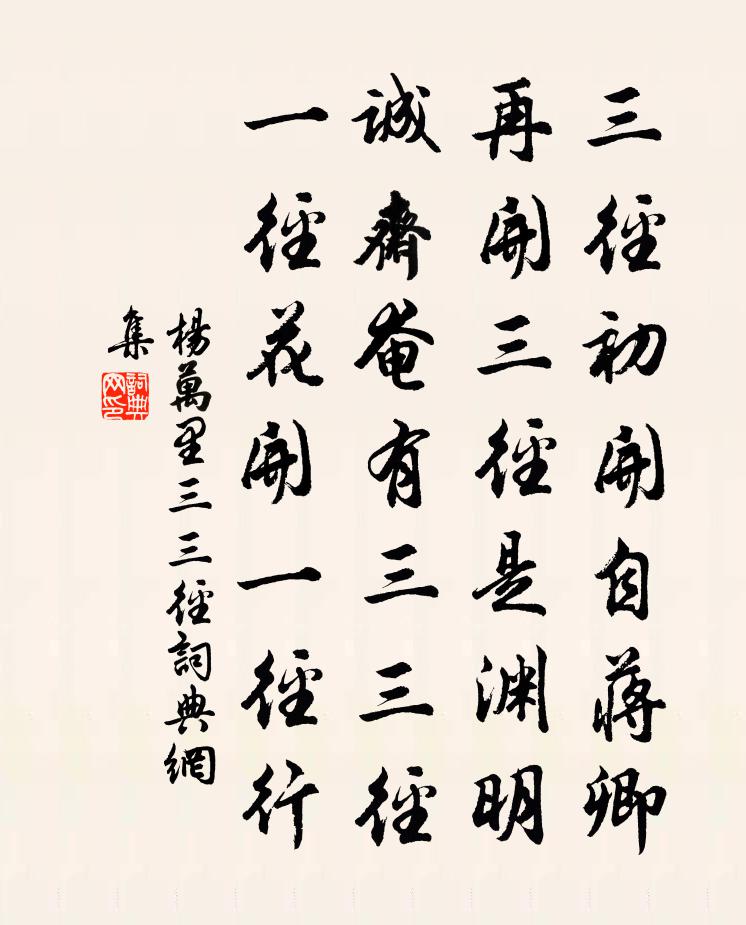 三徑初開自蔣卿
再開三徑是渊明
誠齋奄有三三徑
一徑花開一徑行
楊萬里三三徑詞典網
集
詞典
网印